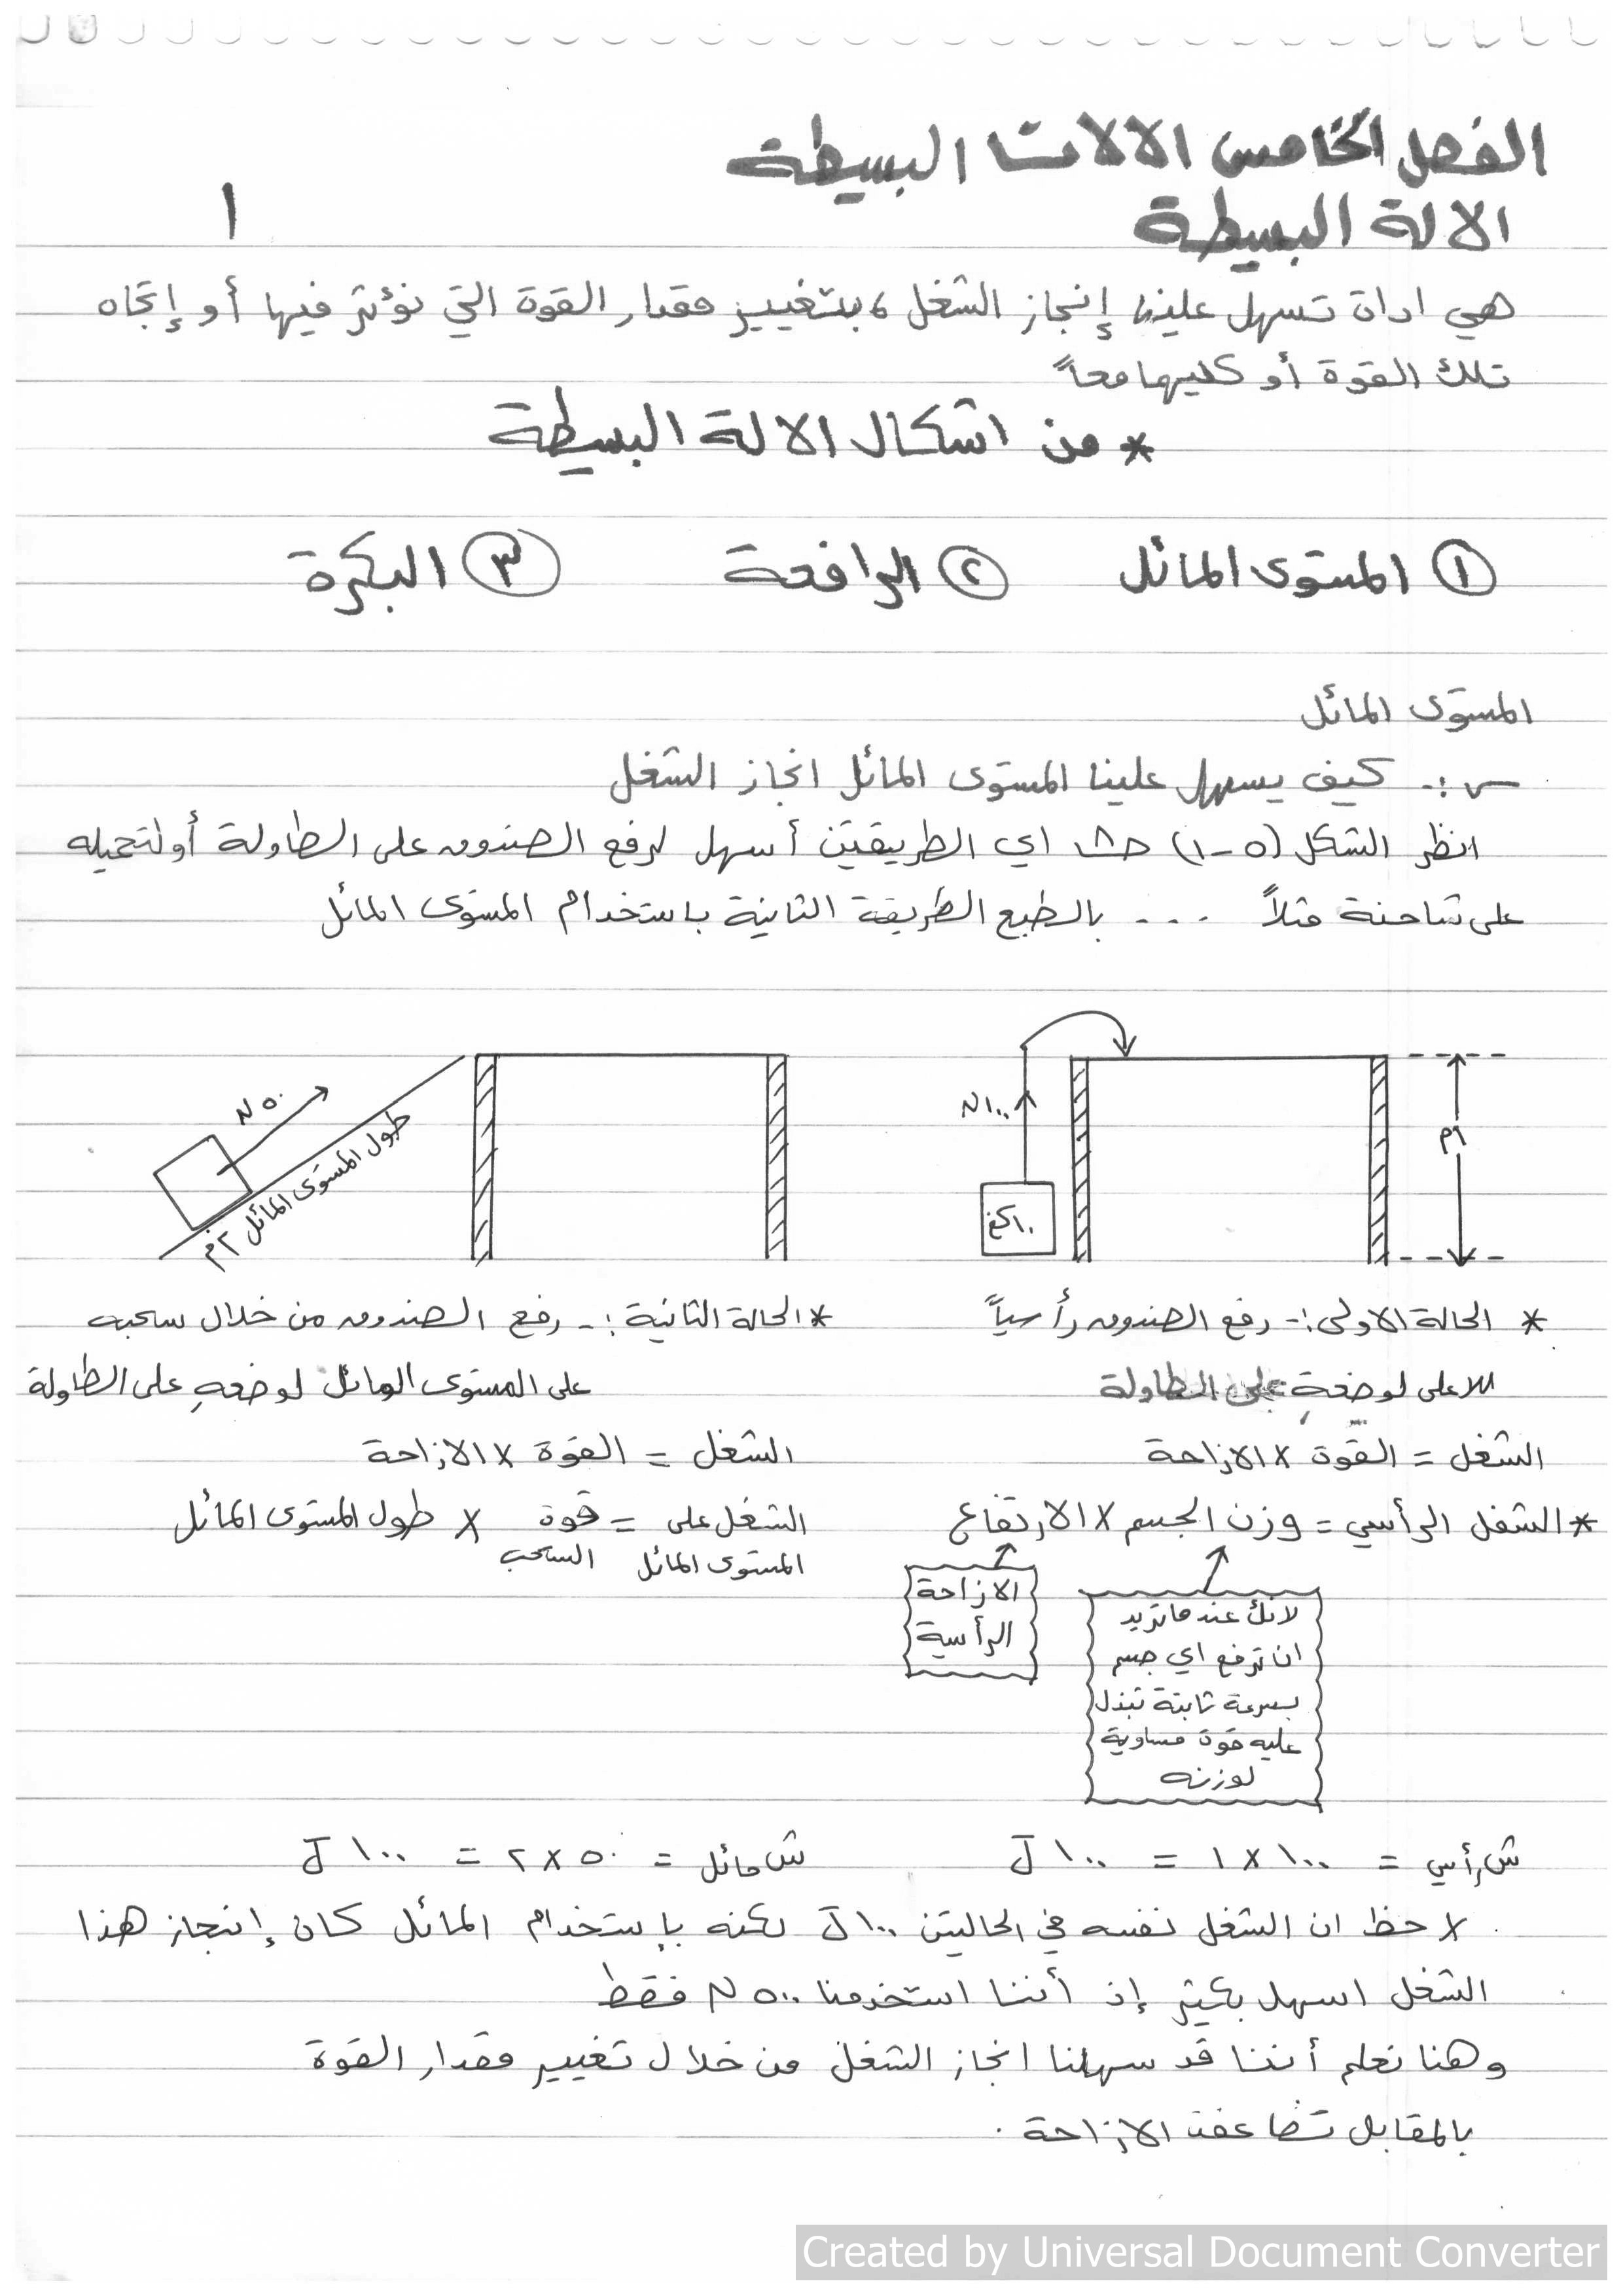 الفصل الخامس الالات البسيطة
١
الالة البسيطة
هي اداة تسهل علينا إنجاز الشغل ، بتغيير مقدار القوة التي نؤثر فيها أو إتجاه
تلك القوة أو كليهما معاً
* من اشكال الالة البسيطة
① المستوى المائل ② الرافعة ③ البكرة
المستوى المائل
س :- كيف يسهل علينا المستوى المائل انجاز الشغل
انظر الشكل (٥-١) اي الطريقتين أسهل لرفع الصندوق على الطاولة أو لتحميله
على شاحنة مثلاً ... بالطبع الطريقة الثانية باستخدام المستوى المائل
١م
N ١٠٠
١٠ كغ
N ٥٠
طول المستوى المائل ٢م
* الحالة الاولى :- رفع الصندوق رأسياً
للاعلى لوضعهِ على الطاولة
الشغل = القوة × الازاحة
* الشغل الرأسي = وزن الجسم × الارتفاع
الازاحة
الرأسية
لانك عندما تريد
ان ترفع اي جسم
بسرعة ثابتة تبذل
عليه قوة مساوية
لوزنه
* الحالة الثانية :- رفع الصندوق من خلال سحبه
على المستوى المائل لوضعهِ على الطاولة
الشغل = القوة × الازاحة
الشغل على = قوة × طول المستوى المائل
المستوى المائل السحب
ش رأسي = ١٠٠ × ١ = ١٠٠ J
ش مائل = ٥٠ × ٢ = ١٠٠ J
لاحظ ان الشغل نفسه في الحاليتن ١٠٠ J لكنه بإستخدام المائل كان إنجاز هذا
الشغل اسهل بكثير إذ أننا استخدمنا ٥٠٠ N فقط
وهنا نعلم أننا قد سهلنا انجاز الشغل من خلال تغيير مقدار القوة
بالمقابل تضاعفت الازاحة .
Created by Universal Document Converter